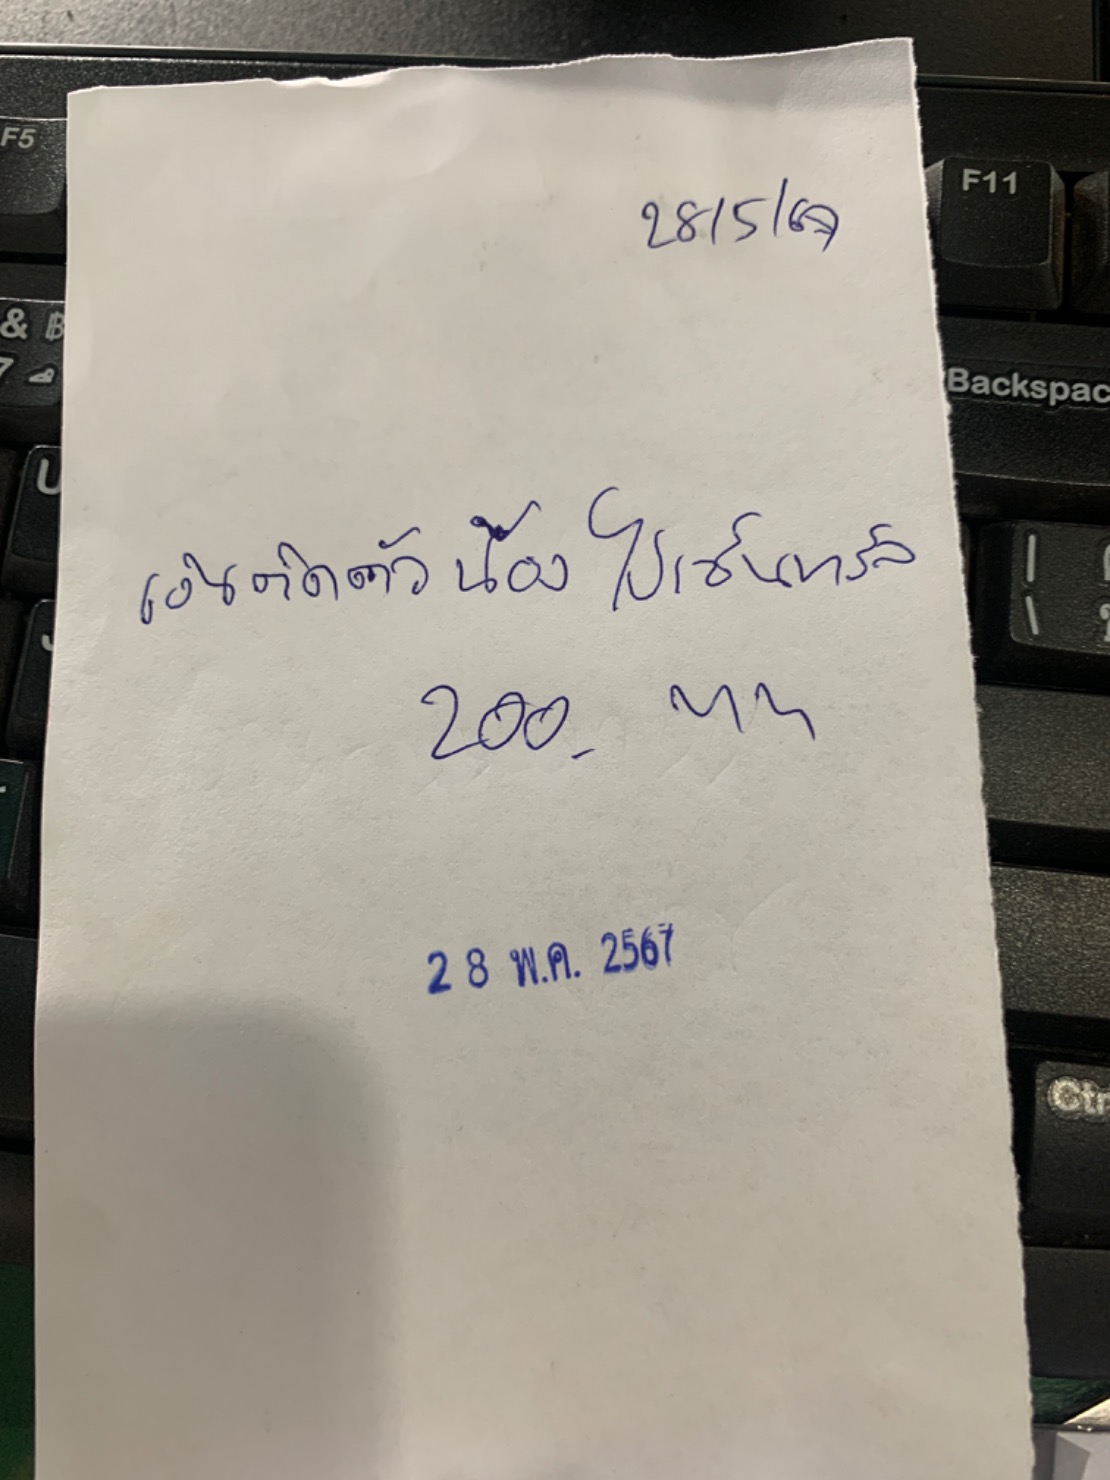 28/5/67
เงินติดตัวน้องไปเซ็นทรัล
200.-
28 พ.ค. 2567
F5
F11
& ฿
7
Backspac
U
Ctr